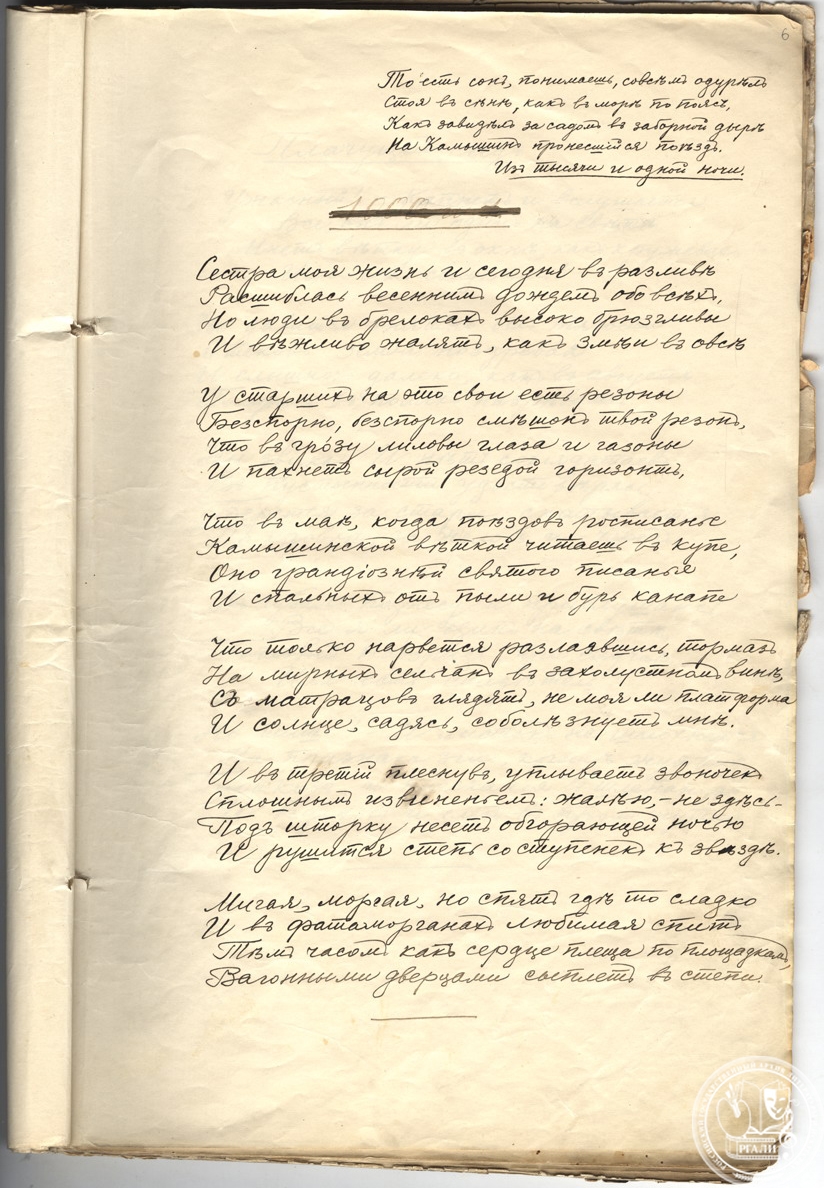 6
То есть сонъ, понимаешь, совсѣмъ одурѣлъ
Стоя въ сѣнѣ, какъ въ морѣ по поясъ,
Какъ завидѣлъ за садомъ въ заборной дырѣ
На Камышинъ пронесшійся поѣздъ.
Изъ тысячи и одной ночи.
Сестра моя жизнь и сегодня въ разливѣ
Расшиблась весеннимъ дождемъ обо всѣхъ,
Но люди въ брелокахъ высоко брюзгливы
И вѣжливо жалятъ, какъ змѣи въ овсѣ
У старшихъ на это свои есть резоны
Безспорно, безспорно смѣшонъ твой резонъ,
Что въ грозу лиловы глаза и газоны
И пахнетъ сырой резедой горизонтъ,
Что въ маѣ, когда поѣздовъ росписанье
Камышинской вѣткой читаешь въ купе,
Оно грандіознѣй святого писанья
И спальныхъ отъ пыли и бурь канапе
Что только нарвется разлаявшись, тормазъ
На мирныхъ сельчанъ въ захолустномъ винѣ,
Съ матрацовъ глядятъ, не моя ли платформа
И солнце, садясь, соболѣзнуетъ мнѣ.
И въ третій плеснувъ, уплываетъ звоночекъ
Сплошнымъ извиненьемъ: жалѣю, – не здѣсь –
Подъ шторку несетъ обгорающей ночью
И рушится степь со ступенекъ къ звѣздѣ.
Мигая, моргая, но спятъ гдѣ то сладко
И въ фатаморганахъ любимая спитъ
Тѣмъ часомъ какъ сердце плеща по площадкамъ,
Вагонными дверцами сыплетъ въ степи.
РГАЛИ